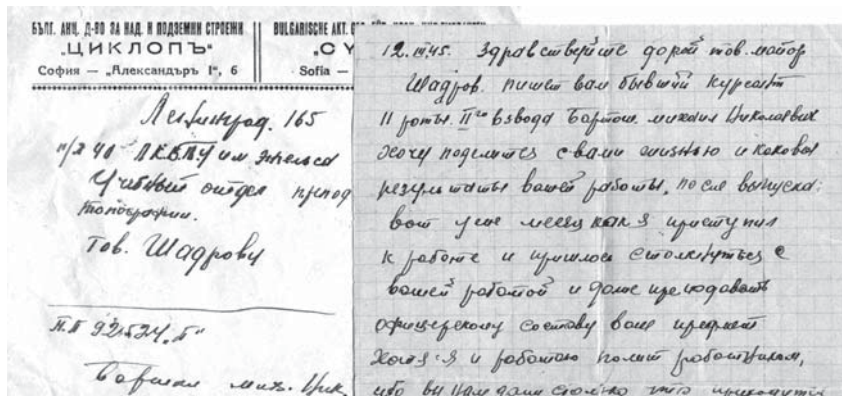 БЪЛГ. АНЦ. Д-ВО ЗА НАД. И ПОДЗЕМНИ СТРОЕЖИ
„ЦИКЛОПЪ“
София — „Александъръ I“, 6
BULGARISCHE AKT.
„C
Sofia —
Ленинград. 165
п/я 40 ЛКВПУ им Энгельса
Учебный отдел препод
топографии.
Тов. Шадрову
П.П 92524 „Б“
Мих. Ник.
12. 45. Здравствуйте дорой тов. майор
Шадров. пишет вам бывший курсант
II роты. II го взвода Бартош. михаил Николаевич
хочу поделится с вами жизнью и каковы
результаты вашей работы, после выпуска:
вот уже месяц как я приступил
к работе и пришлось столкнуться с
вашей работой и даже преподавать
офицерскому составу ваш предмет
хотя я и работаю полит работником,
ибо вы нам дали столько что приходится